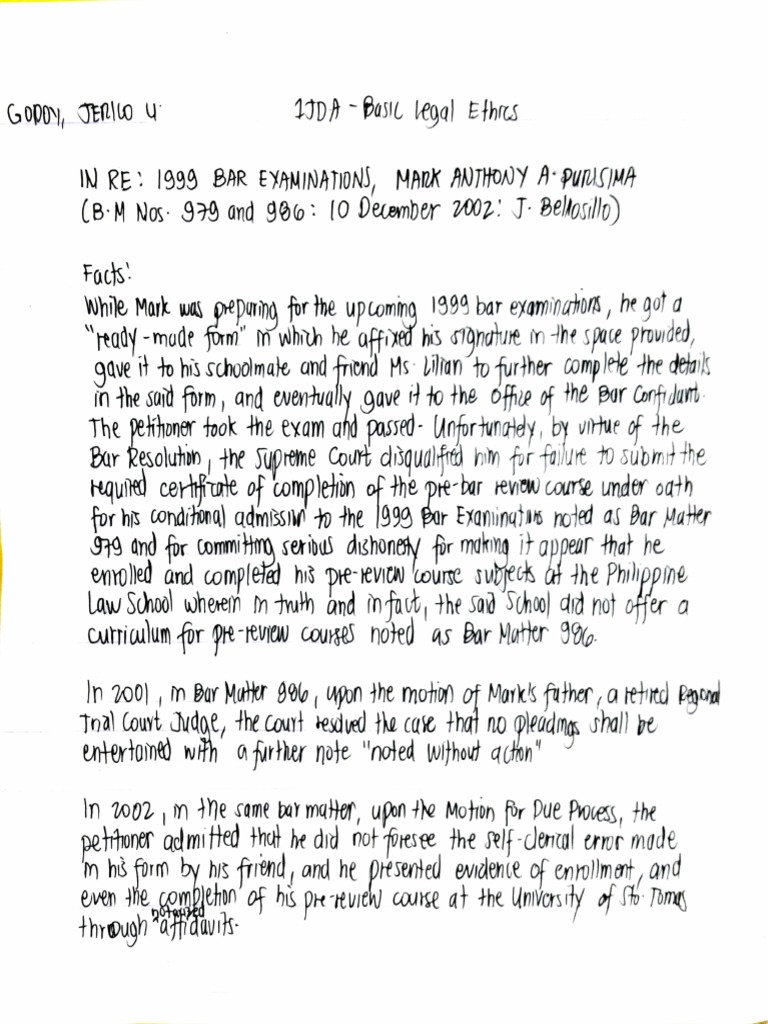 GODOY, JERICO U. 1JDA - Basic Legal Ethics
IN RE: 1999 BAR EXAMINATIONS, MARK ANTHONY A. PURISIMA
(B.M Nos. 979 and 986: 10 December 2002: J. Bellosillo)
Facts:
While Mark was preparing for the upcoming 1999 bar examinations, he got a
"ready-made form" in which he affixed his signature in the space provided,
gave it to his schoolmate and friend Ms. Lilian to further complete the details
in the said form, and eventually gave it to the office of the Bar Confidant.
The petitioner took the exam and passed. Unfortunately, by virtue of the
Bar Resolution, the Supreme Court disqualified him for failure to submit the
required certificate of completion of the pre-bar review course under oath
for his conditional admission to the 1999 Bar Examinations noted as Bar Matter
979 and for committing serious dishonesty for making it appear that he
enrolled and completed his pre-review course subjects at the Philippine
Law School wherein in truth and in fact, the said School did not offer a
curriculum for pre-review courses noted as Bar Matter 986.
In 2001, in Bar Matter 986, upon the motion of Mark's father, a retired Regional
Trial Court Judge, the Court resolved the case that no pleadings shall be
entertained with a further note "noted without action"
In 2002, in the same bar matter, upon the Motion for Due Process, the
petitioner admitted that he did not foresee the self-clerical error made
in his form by his friend, and he presented evidence of enrollment, and
even the completion of his pre-review course at the University of Sto. Tomas
through notarized affidavits.